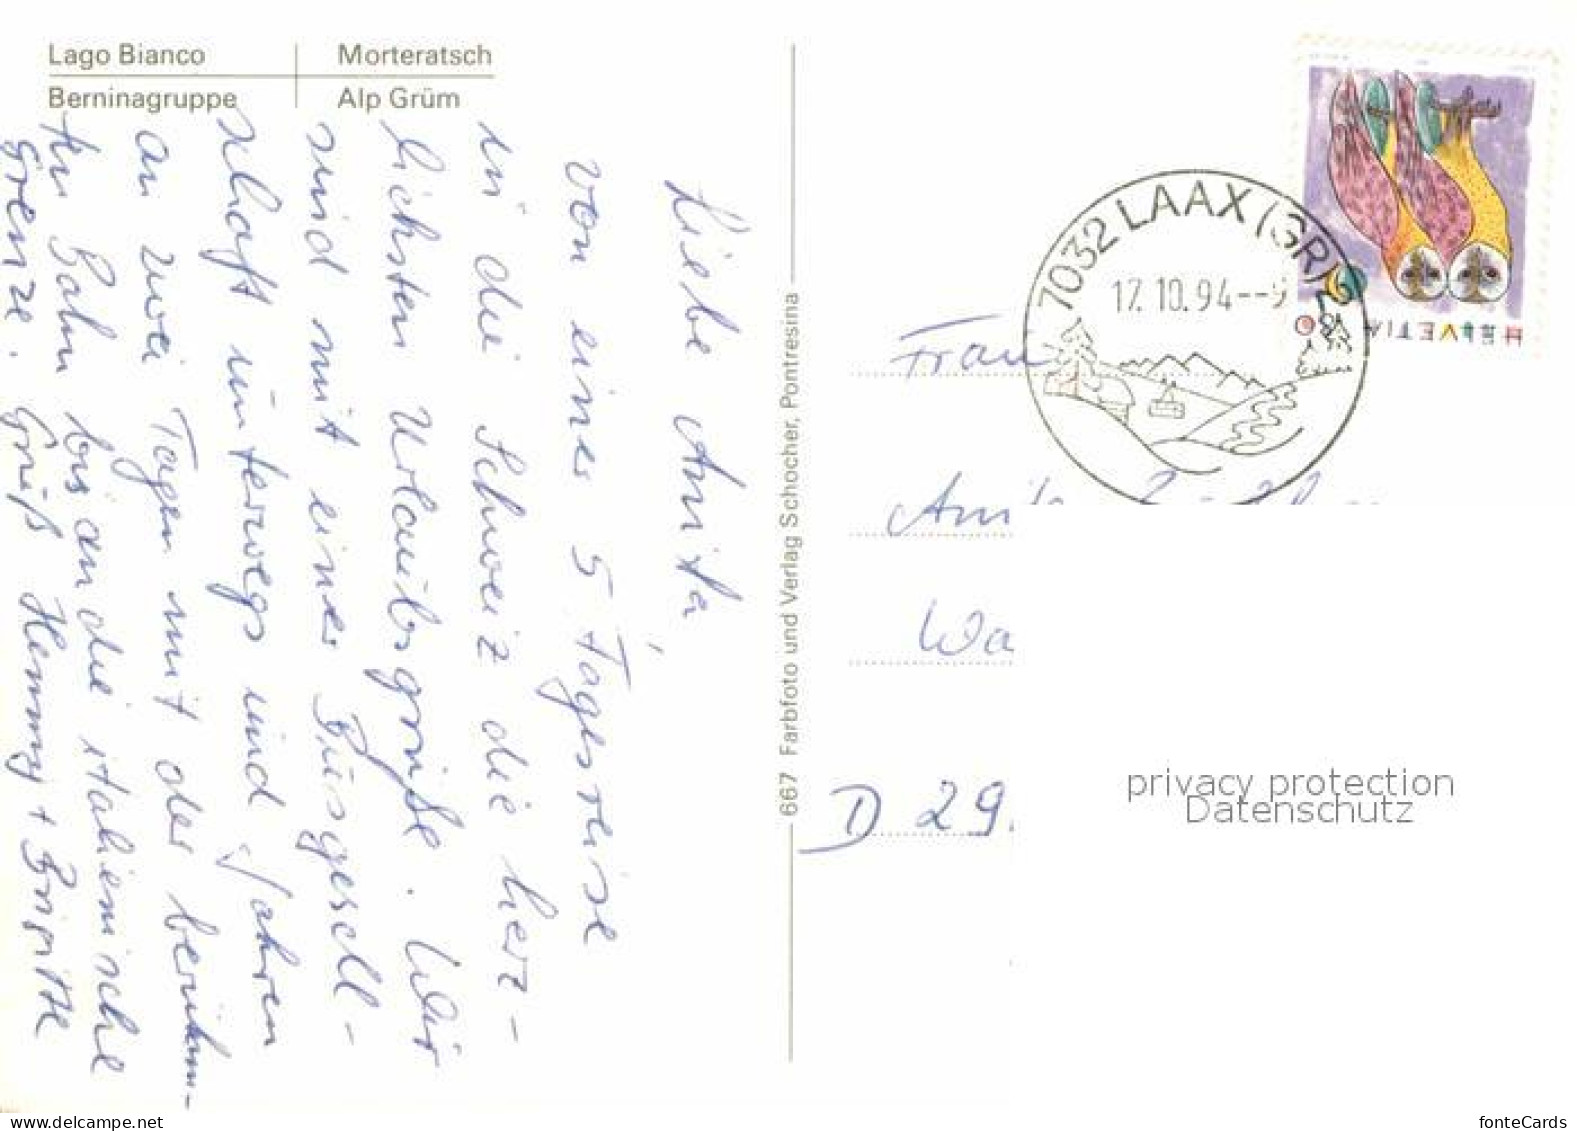 Lago Bianco
Morteratsch
Berninagruppe
Alp Grüm
Liebe Anita,
von einer 5 Tagesreise
in die Schweiz die herz-
lichsten Urlaubsgrüße. Wir
sind mit einer Busgesell-
schaft unterwegs und fahren
an zwei Tagen mit der berühm-
ten Bahn bis an die italienische
Grenze. Gruß Henny + Brigitte
667 Farbfoto und Verlag Schocher, Pontresina
7032 LAAX (GR) 2
17.10.94--9
HELVETIA
Frau
D 29.
privacy protection
Datenschutz
www.delcampe.net
fonteCards